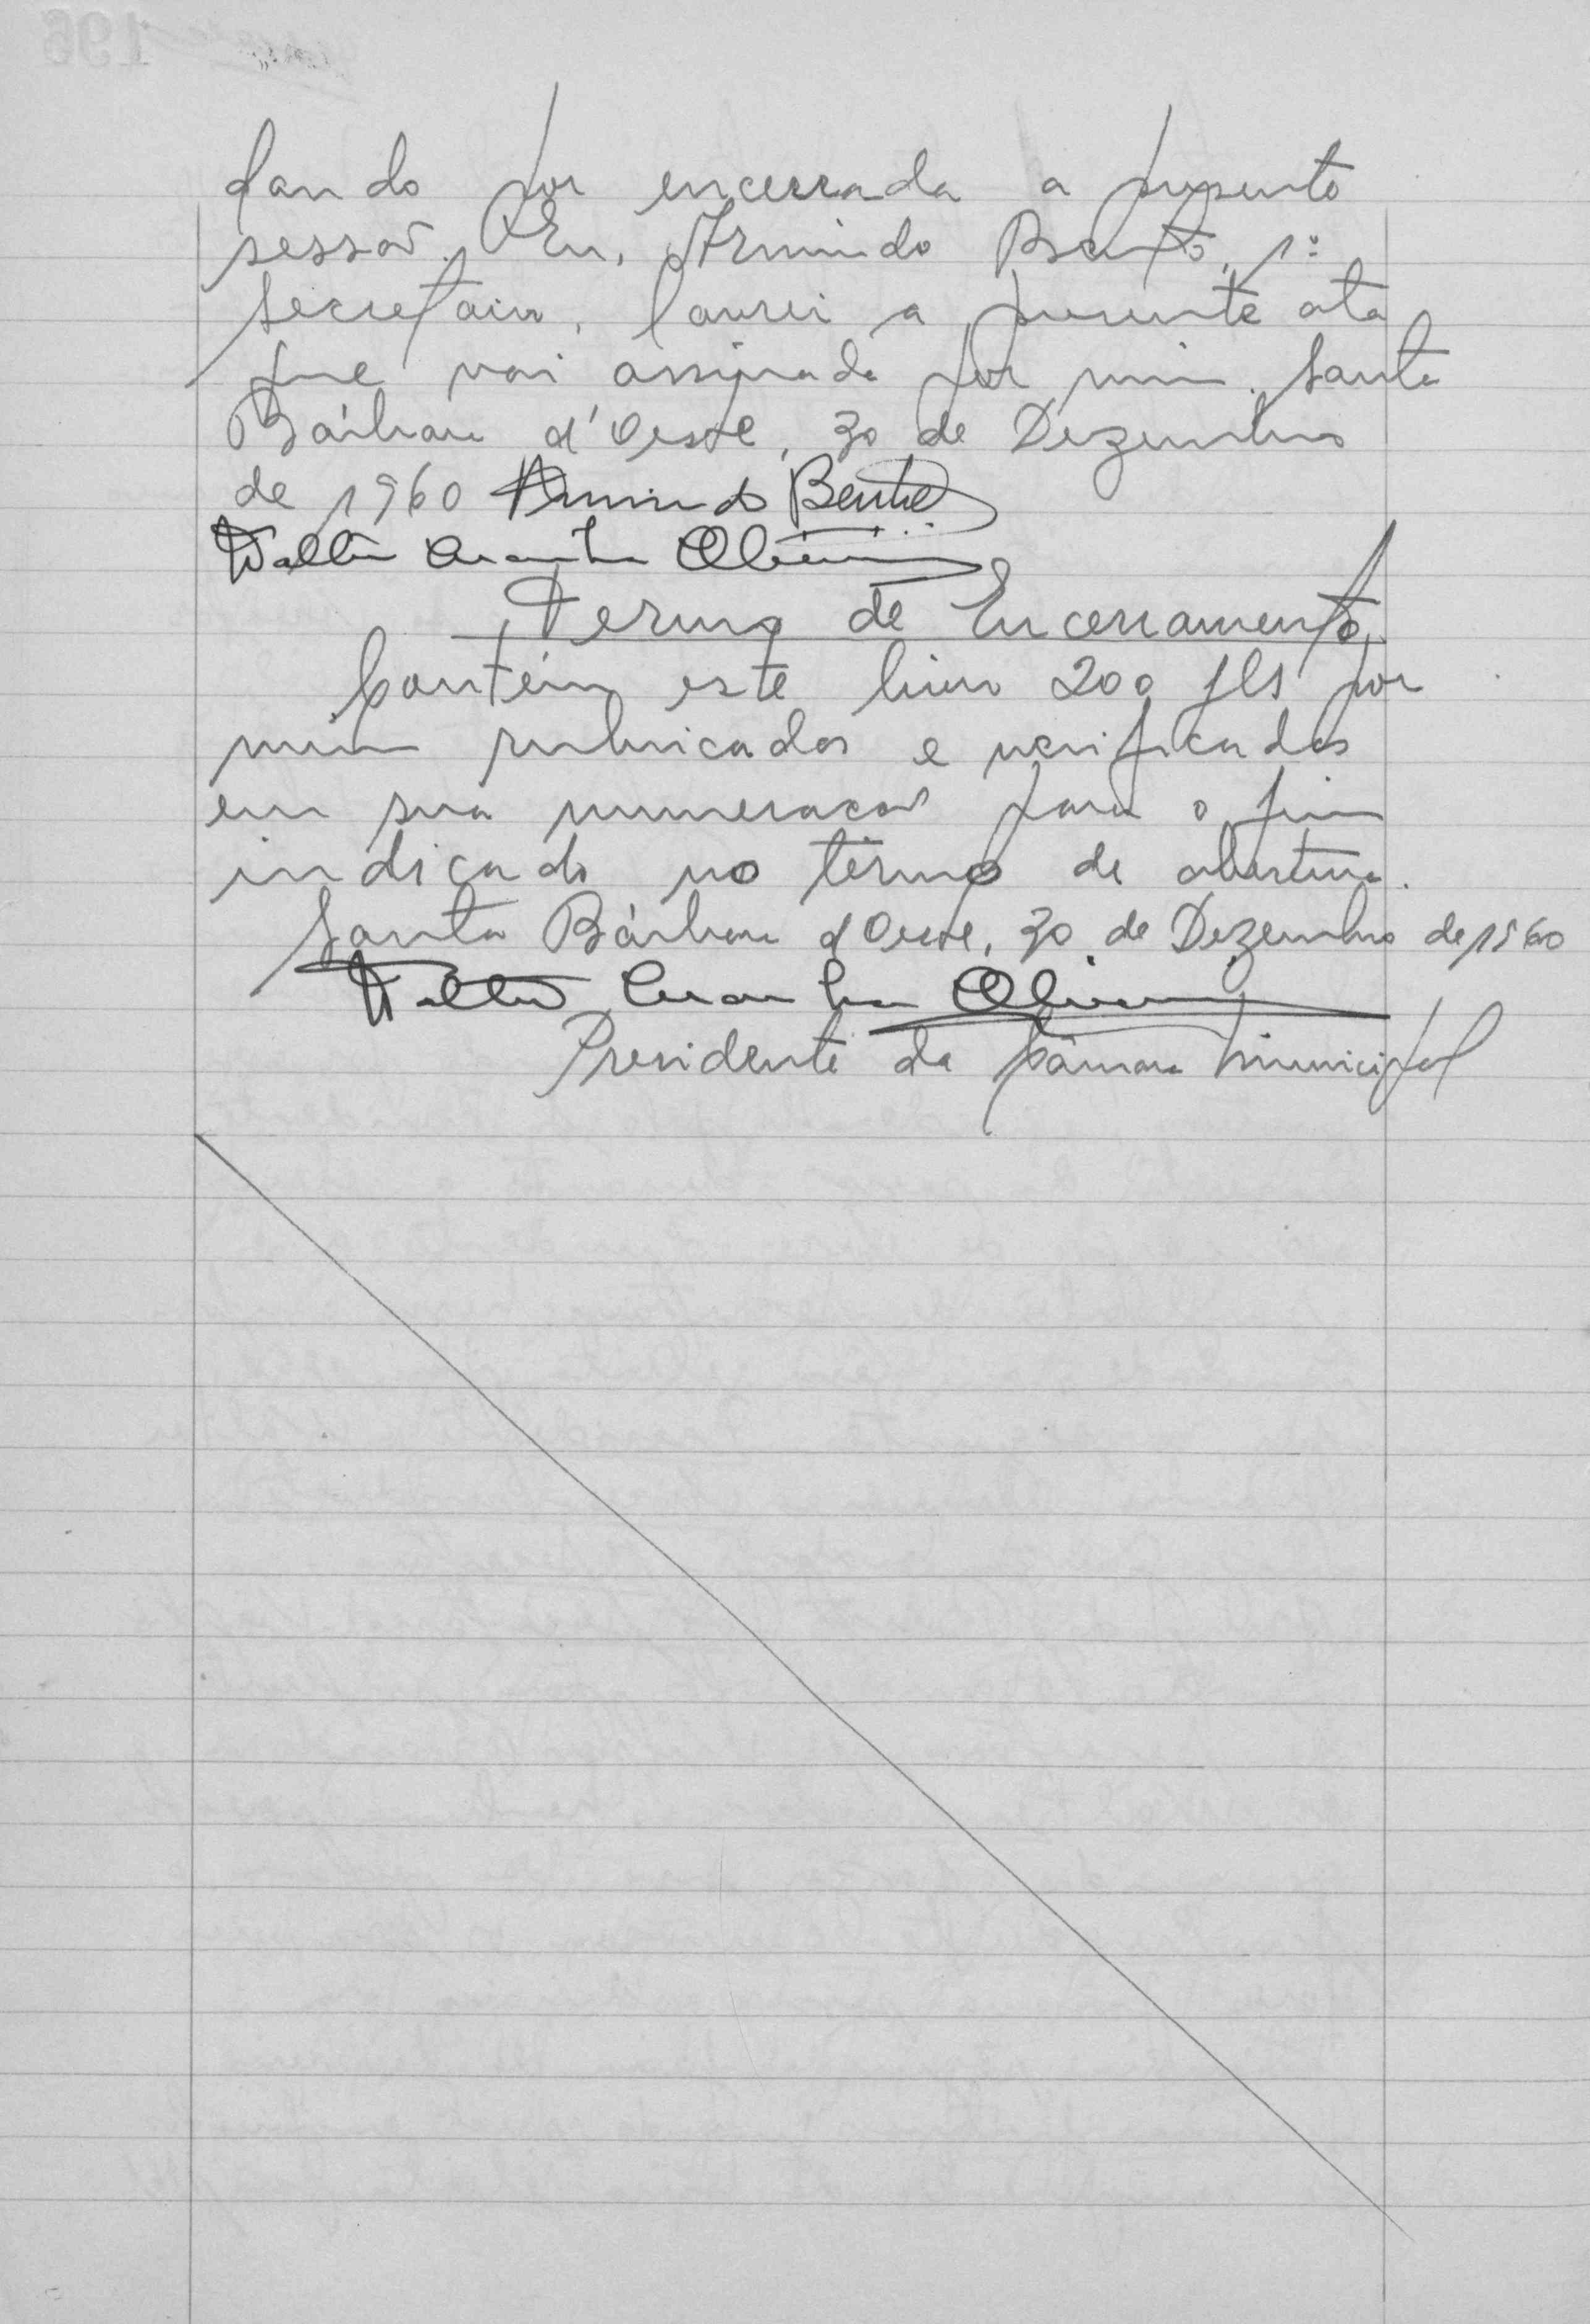 dando por encerrada a presente
sessão. Eu, Armindo Bento, 1º
Secretario, lavrei a presente ata
que vai assinada por mim. Santa
Bárbara d'Oeste, 30 de Dezembro
de 1960 Armindo Bento
Walter Oliveira
Termo de Encerramento
Contém este livro 200 fls por
mim rubricadas e verificadas
em sua numeracão para o fim
indicado no têrmo de abertura.
Santa Bárbara d'Oeste, 30 de Dezembro de 1960
Walter Oliveira
Presidente da Câmara Municipal